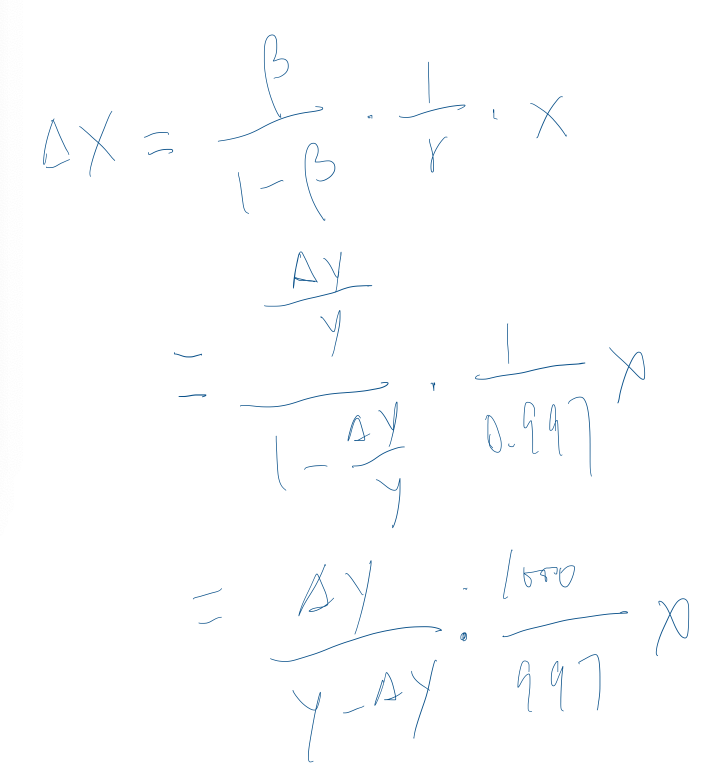 Δx = \frac{β}{1-β} · \frac{1}{γ} · x
= \frac{\frac{Δy}{y}}{1-\frac{Δy}{y}} · \frac{1}{0.997} x
= \frac{Δy}{y-Δy} · \frac{1000}{997} x